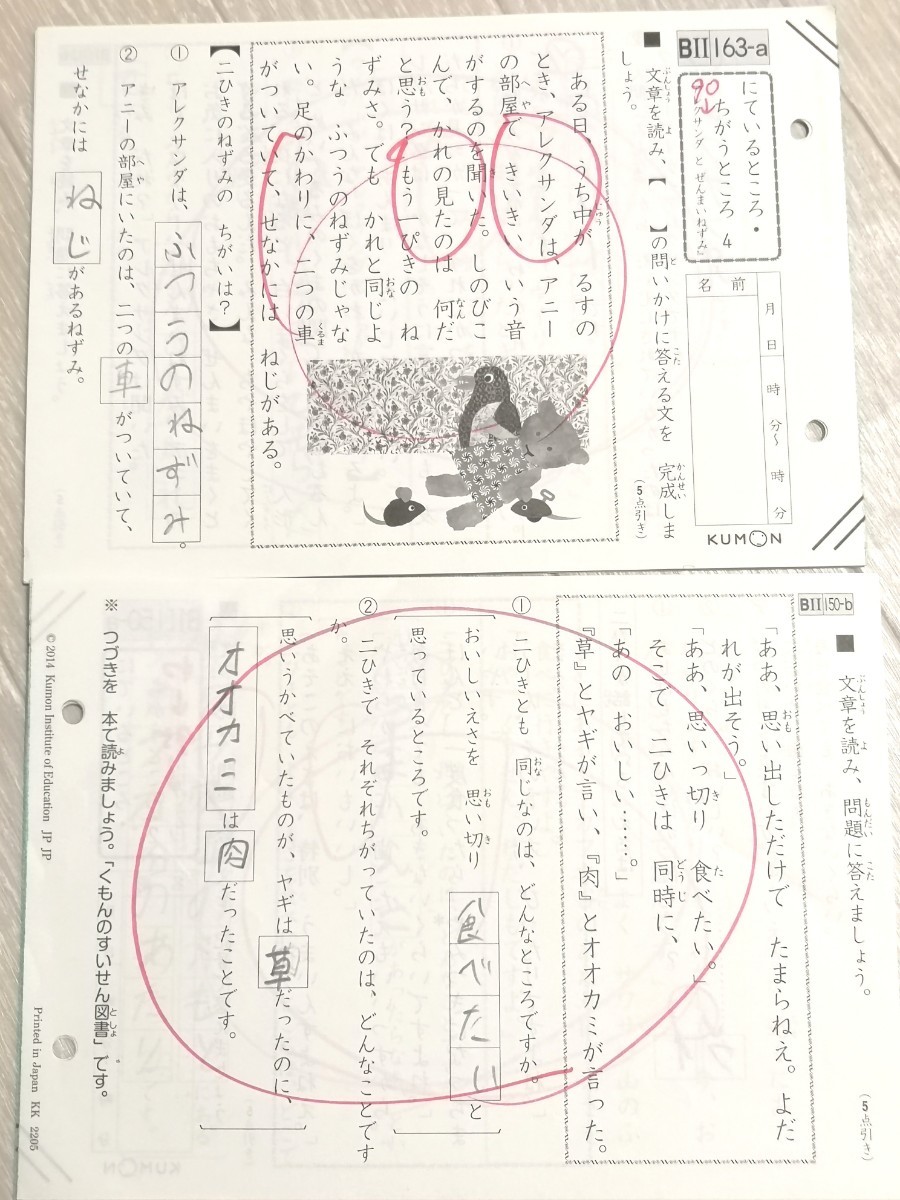 BⅡ 163-a
にているところ・
ちがうところ 4
クサンダ と ぜんまいねずみ」
90
名前
月 日
時 分〜 時 分
KUMON
■ 文章を読み、【 】の問いかけに答える文を 完成しま
しょう。
(5点引き)
ある日、うち中が るすの
とき、アレクサンダは、アニー
の部屋で きいきい いう音
がするのを聞いた。しのびこ
んで、かれの見たのは 何だ
と思う?もう一ぴきの ね
ずみさ。でも かれと同じよ
うな ふつうのねずみじゃな
い。足のかわりに、二つの車
がついていて、せなかには ねじがある。
【二ひきのねずみの ちがいは?】
① アレクサンダは、ふつうのねずみ。
② アニーの部屋にいたのは、二つの車がついていて、
せなかには ねじがあるねずみ。
BⅡ 150-b
■ 文章を読み、問題に答えましょう。
(5点引き)
「ああ、思い出しただけで たまらねえ。よだ
れが出そう。」
「ああ、思いっ切り 食べたい。」
そこで 二ひきは 同時に、
「あの おいしい……。」
『草』とヤギが言い、『肉』とオオカミが言った。
① 二ひきとも 同じなのは、どんなところですか。
おいしいえさを 思い切り 食べたいと
思っているところです。
② 二ひきで それぞれちがっていたのは、どんなことです
か。
思いうかべていたものが、ヤギは草だったのに、
オオカミは肉だったことです。
※ つづきを 本で読みましょう。「くもんのすいせん図書」です。
© 2014 Kumon Institute of Education JP JP
Printed in Japan KK 2205